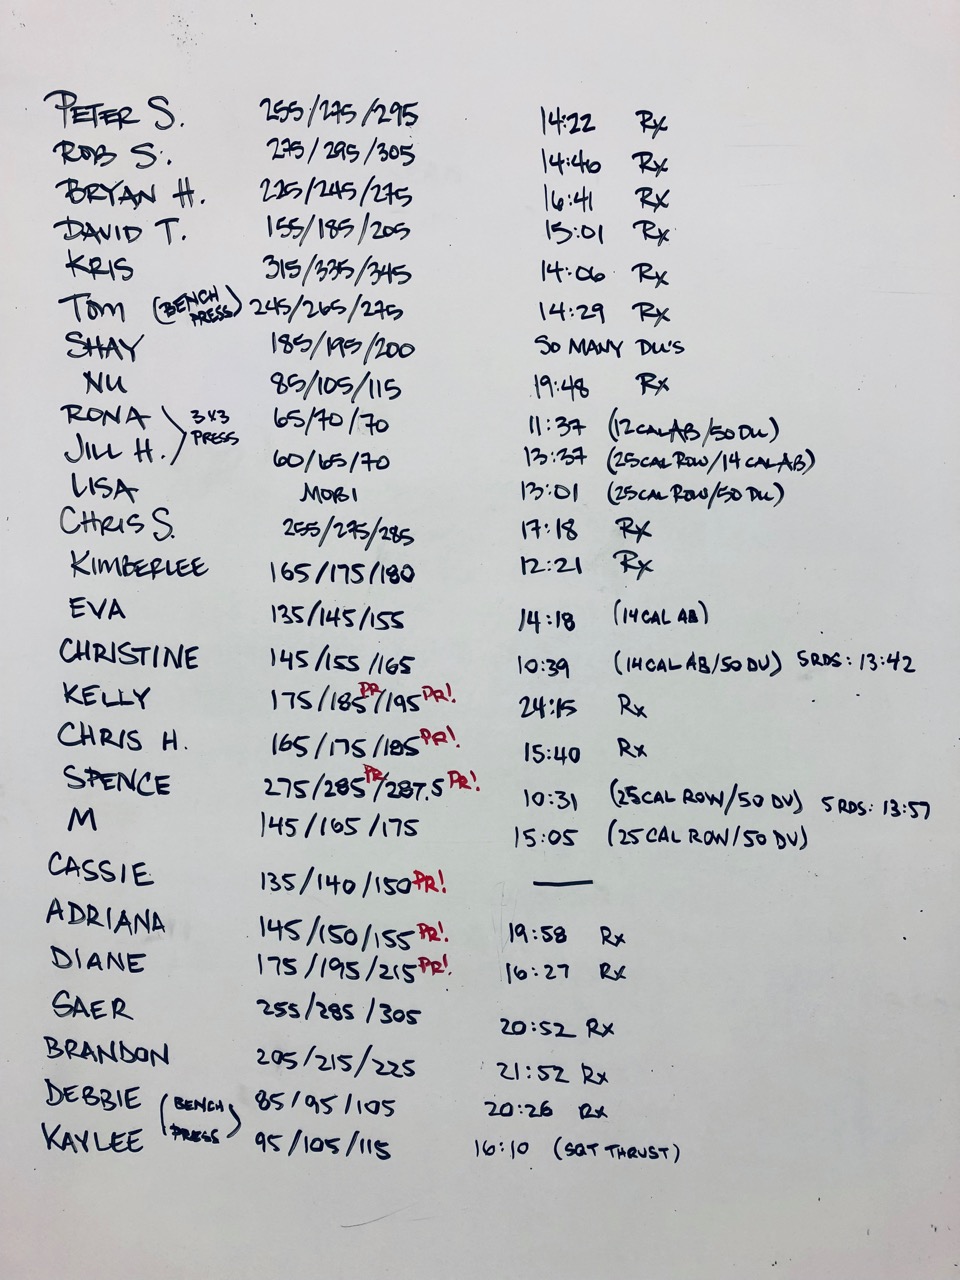 PETER S. 255/275/295 14:22 Rx
ROB S. 275/295/305 14:46 Rx
BRYAN H. 225/245/275 16:41 Rx
DAVID T. 155/185/205 15:01 Rx
KRIS 315/335/345 14:06 Rx
TOM (BENCH PRESS) 245/265/275 14:29 Rx
SHAY 185/195/200 SO MANY DU'S
NU 85/105/115 19:48 Rx
RONA 3x3 65/70/70 11:37 (12 CAL AB/50 DU)
JILL H. PRESS 60/65/70 13:37 (25 CAL ROW/14 CAL AB)
LISA MOBI 13:01 (25 CAL ROW/50 DU)
CHRIS S. 255/275/285 17:18 Rx
KIMBERLEE 165/175/180 12:21 Rx
EVA 135/145/155 14:18 (14 CAL AB)
CHRISTINE 145/155/165 10:39 (14 CAL AB/50 DU) 5 RDS: 13:42
KELLY 175/185 PR/195 PR! 24:15 Rx
CHRIS H. 165/175/185 PR! 15:40 Rx
SPENCE 275/285 PR/287.5 PR! 10:31 (25 CAL ROW/50 DU) 5 RDS: 13:57
M 145/165/175 15:05 (25 CAL ROW/50 DU)
CASSIE 135/140/150 PR! —
ADRIANA 145/150/155 PR! 19:58 Rx
DIANE 175/195/215 PR! 16:27 Rx
SAER 255/285/305 20:52 Rx
BRANDON 205/215/225 21:52 Rx
DEBBIE (BENCH 85/95/105 20:26 Rx
KAYLEE PRESS) 95/105/115 16:10 (SQT THRUST)